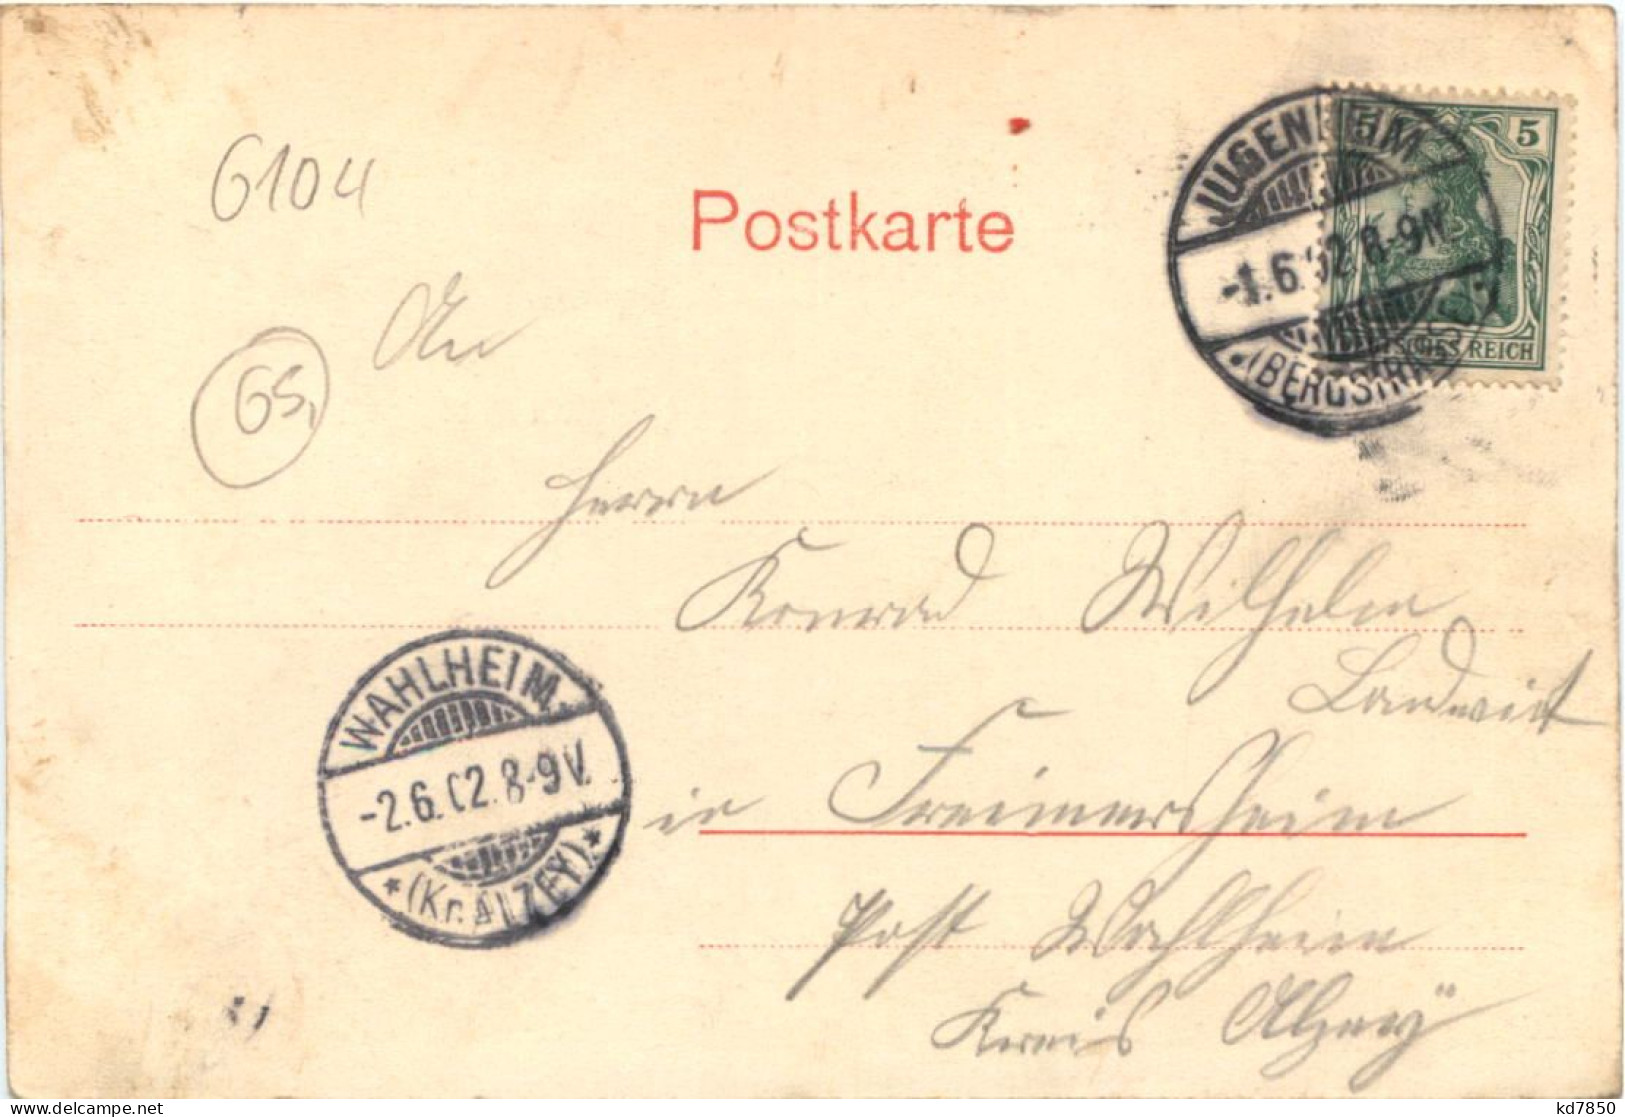 6104
Postkarte
JUGENHEIM
5 5
-1.6.02.8-9N.
(BERGSTRASSE)
REICH
An
GS,
Herrn
Konrad Wilhelm
Landwirt
WAHLHEIM.
-2.6.02.8-9V.
*(Kr. ALZEY)*
in Freimersheim
Post Wahlheim
Kreis Alzeÿ
kd7850